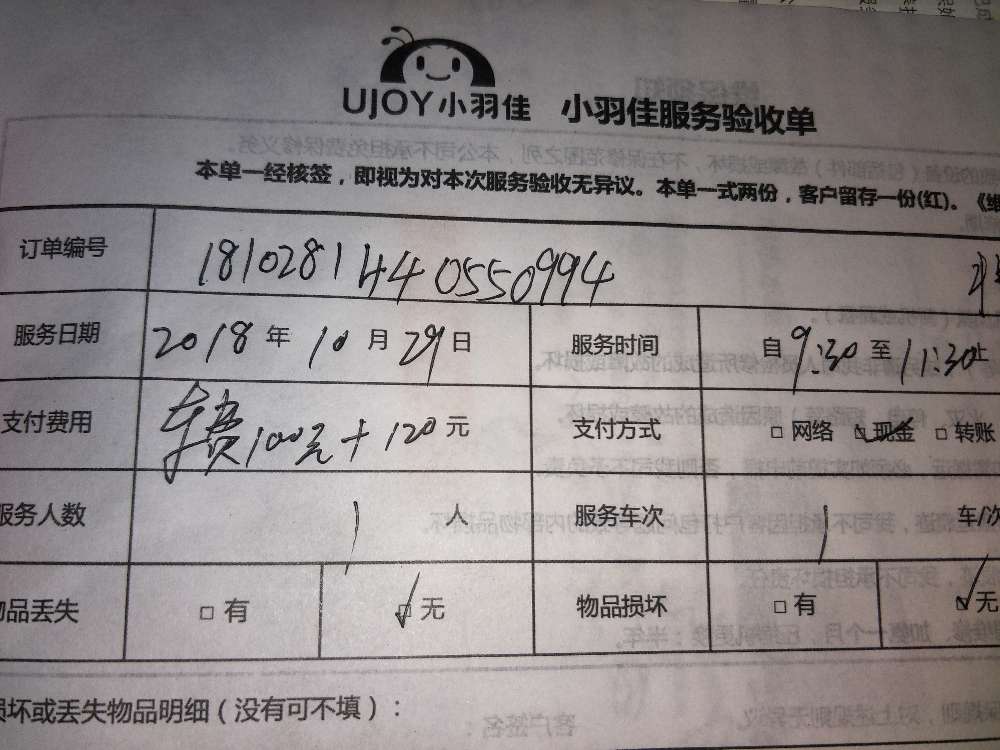 UJOY小羽佳 小羽佳服务验收单
本单一经核签，即视为对本次服务验收无异议。本单一式两份，客户留存一份(红)。《维
订单编号 1810281440550994
服务日期 2018年10月29日 服务时间 自9:30至11:30止
支付费用 车费100元+120元 支付方式 □网络 ☑现金 □转账
服务人数 1人 服务车次 1 车/次
物品丢失 □有 ☑无 物品损坏 □有 ☑无
损坏或丢失物品明细（没有可不填）：